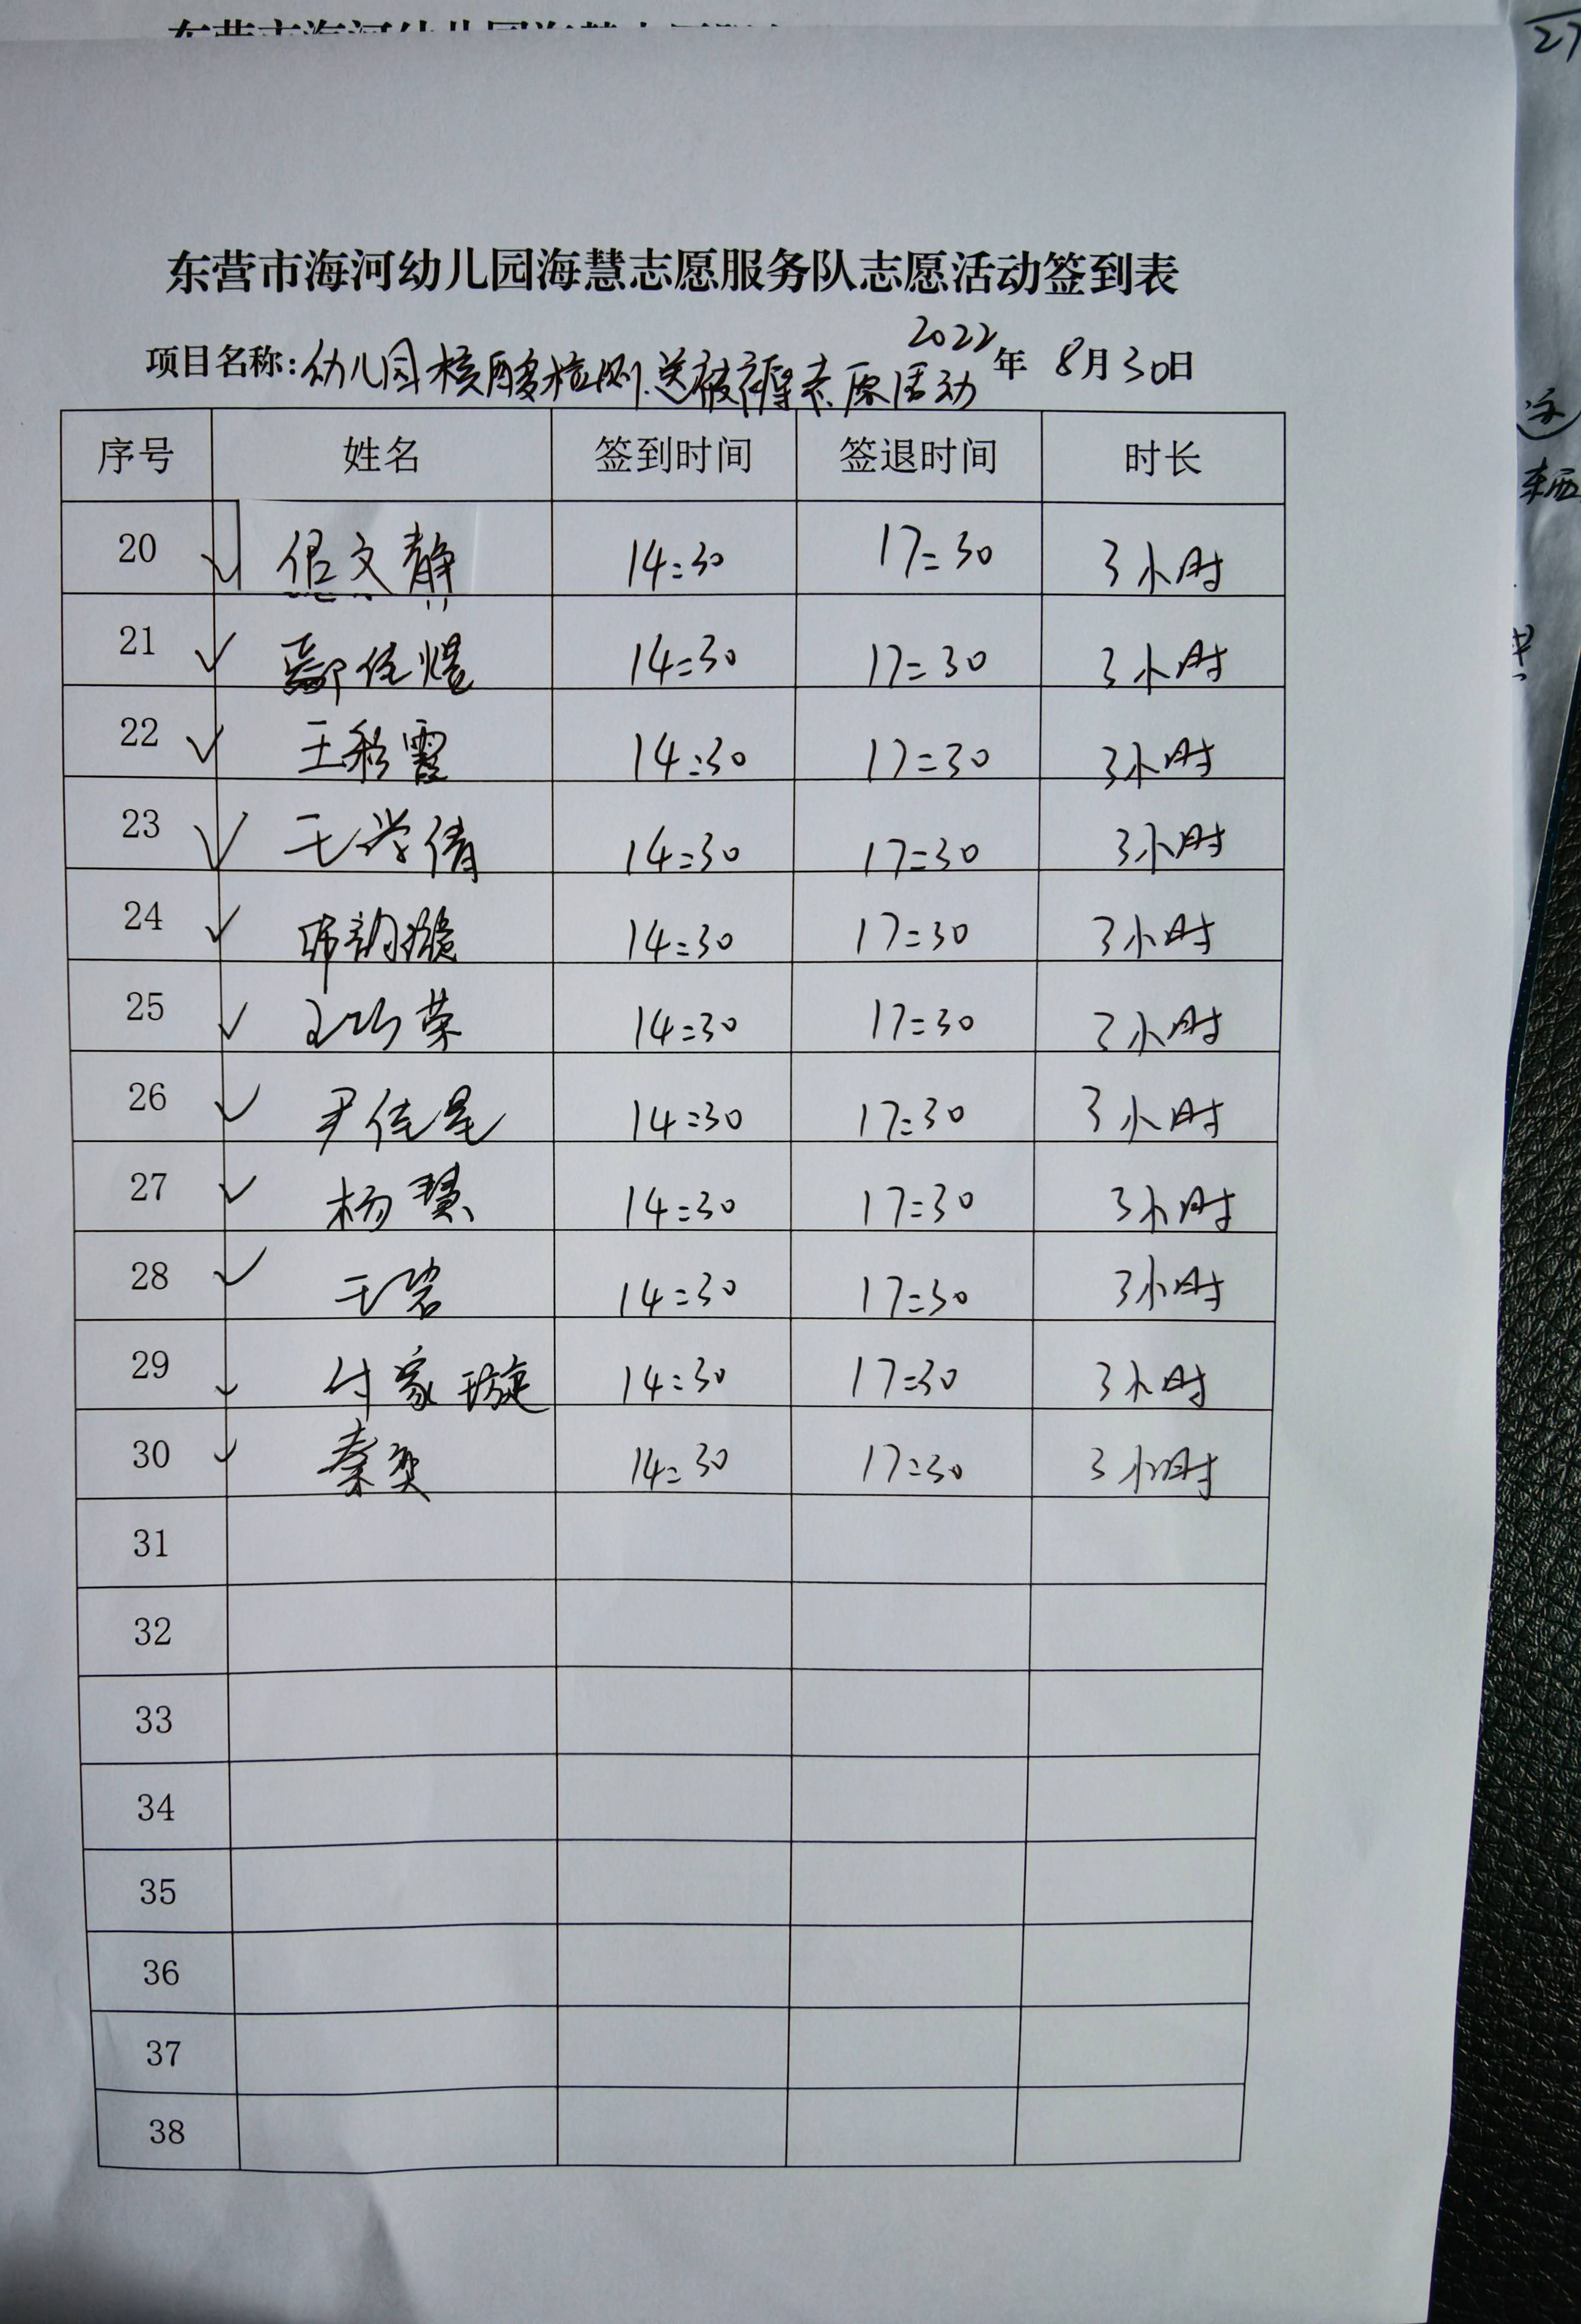 东营市海河幼儿园海慧志愿服务队志愿活动签到表
项目名称:幼儿园核酸检测.送被褥志愿活动 2022年 8月30日
序号 姓名 签到时间 签退时间 时长
20 ✓ 倡文静 14:30 17:30 3小时
21 ✓ 鄢佳煜 14:30 17:30 3小时
22 ✓ 王彩霞 14:30 17:30 3小时
23 ✓ 王学倩 14:30 17:30 3小时
24 ✓ 14:30 17:30 3小时
25 ✓ 王巧荣 14:30 17:30 3小时
26 ✓ 尹佳星 14:30 17:30 3小时
27 ✓ 杨慧 14:30 17:30 3小时
28 ✓ 14:30 17:30 3小时
29 ✓ 付家璇 14:30 17:30 3小时
30 ✓ 秦奕 14:30 17:30 3小时
31
32
33
34
35
36
37
38